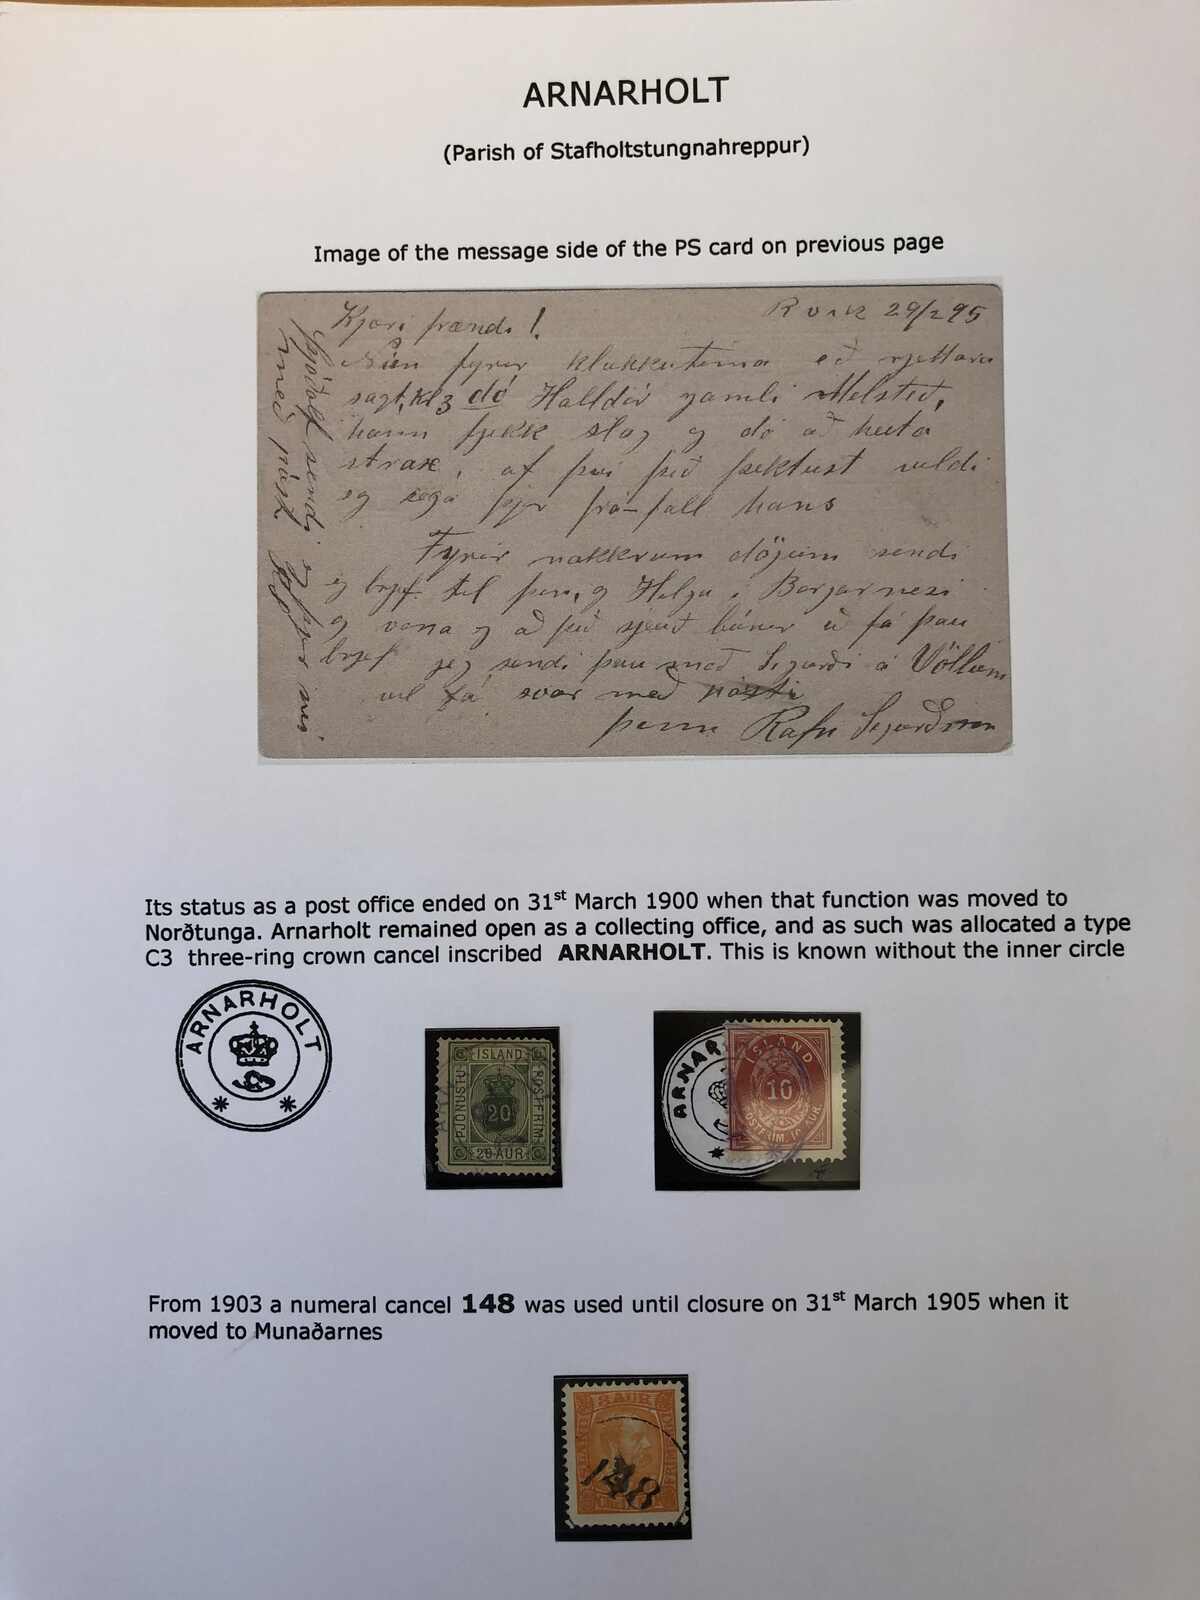 ARNARHOLT
(Parish of Stafholtstungnahreppur)
Image of the message side of the PS card on previous page
Rvík 29/2 95
Kjæri frændi!
Núna fyrir klukkutíma eð rjettara
sagt, kl 3 dó Halldór gamli Melsteð,
hann fjekk slag og dó að heita
strax, af því þið þektust vildi
eg segja þjer frá-fall hans
Fyrir nokkrum dögum sendi
eg brjef til þín, og Helga í Borgarnesi
og vona eg að þið sjeuð búnir að fá þau
brjef jeg sendi þau með Sigurði á Völlum
vil fá svar með pósti
þinn Rafn Sigurðsson
Þjóðólf sendi eg þjer nú
með póst
Its status as a post office ended on 31st March 1900 when that function was moved to
Norðtunga. Arnarholt remained open as a collecting office, and as such was allocated a type
C3 three-ring crown cancel inscribed ARNARHOLT. This is known without the inner circle
ARNARHOLT
ÍSLAND
ÞJÓNUSTU
PÓSTFRIM
20
20 AUR
ARNAR
ÍSLAND
10
PÓSTFRIM 10 AUR.
From 1903 a numeral cancel 148 was used until closure on 31st March 1905 when it
moved to Munaðarnes
3 AUR
148